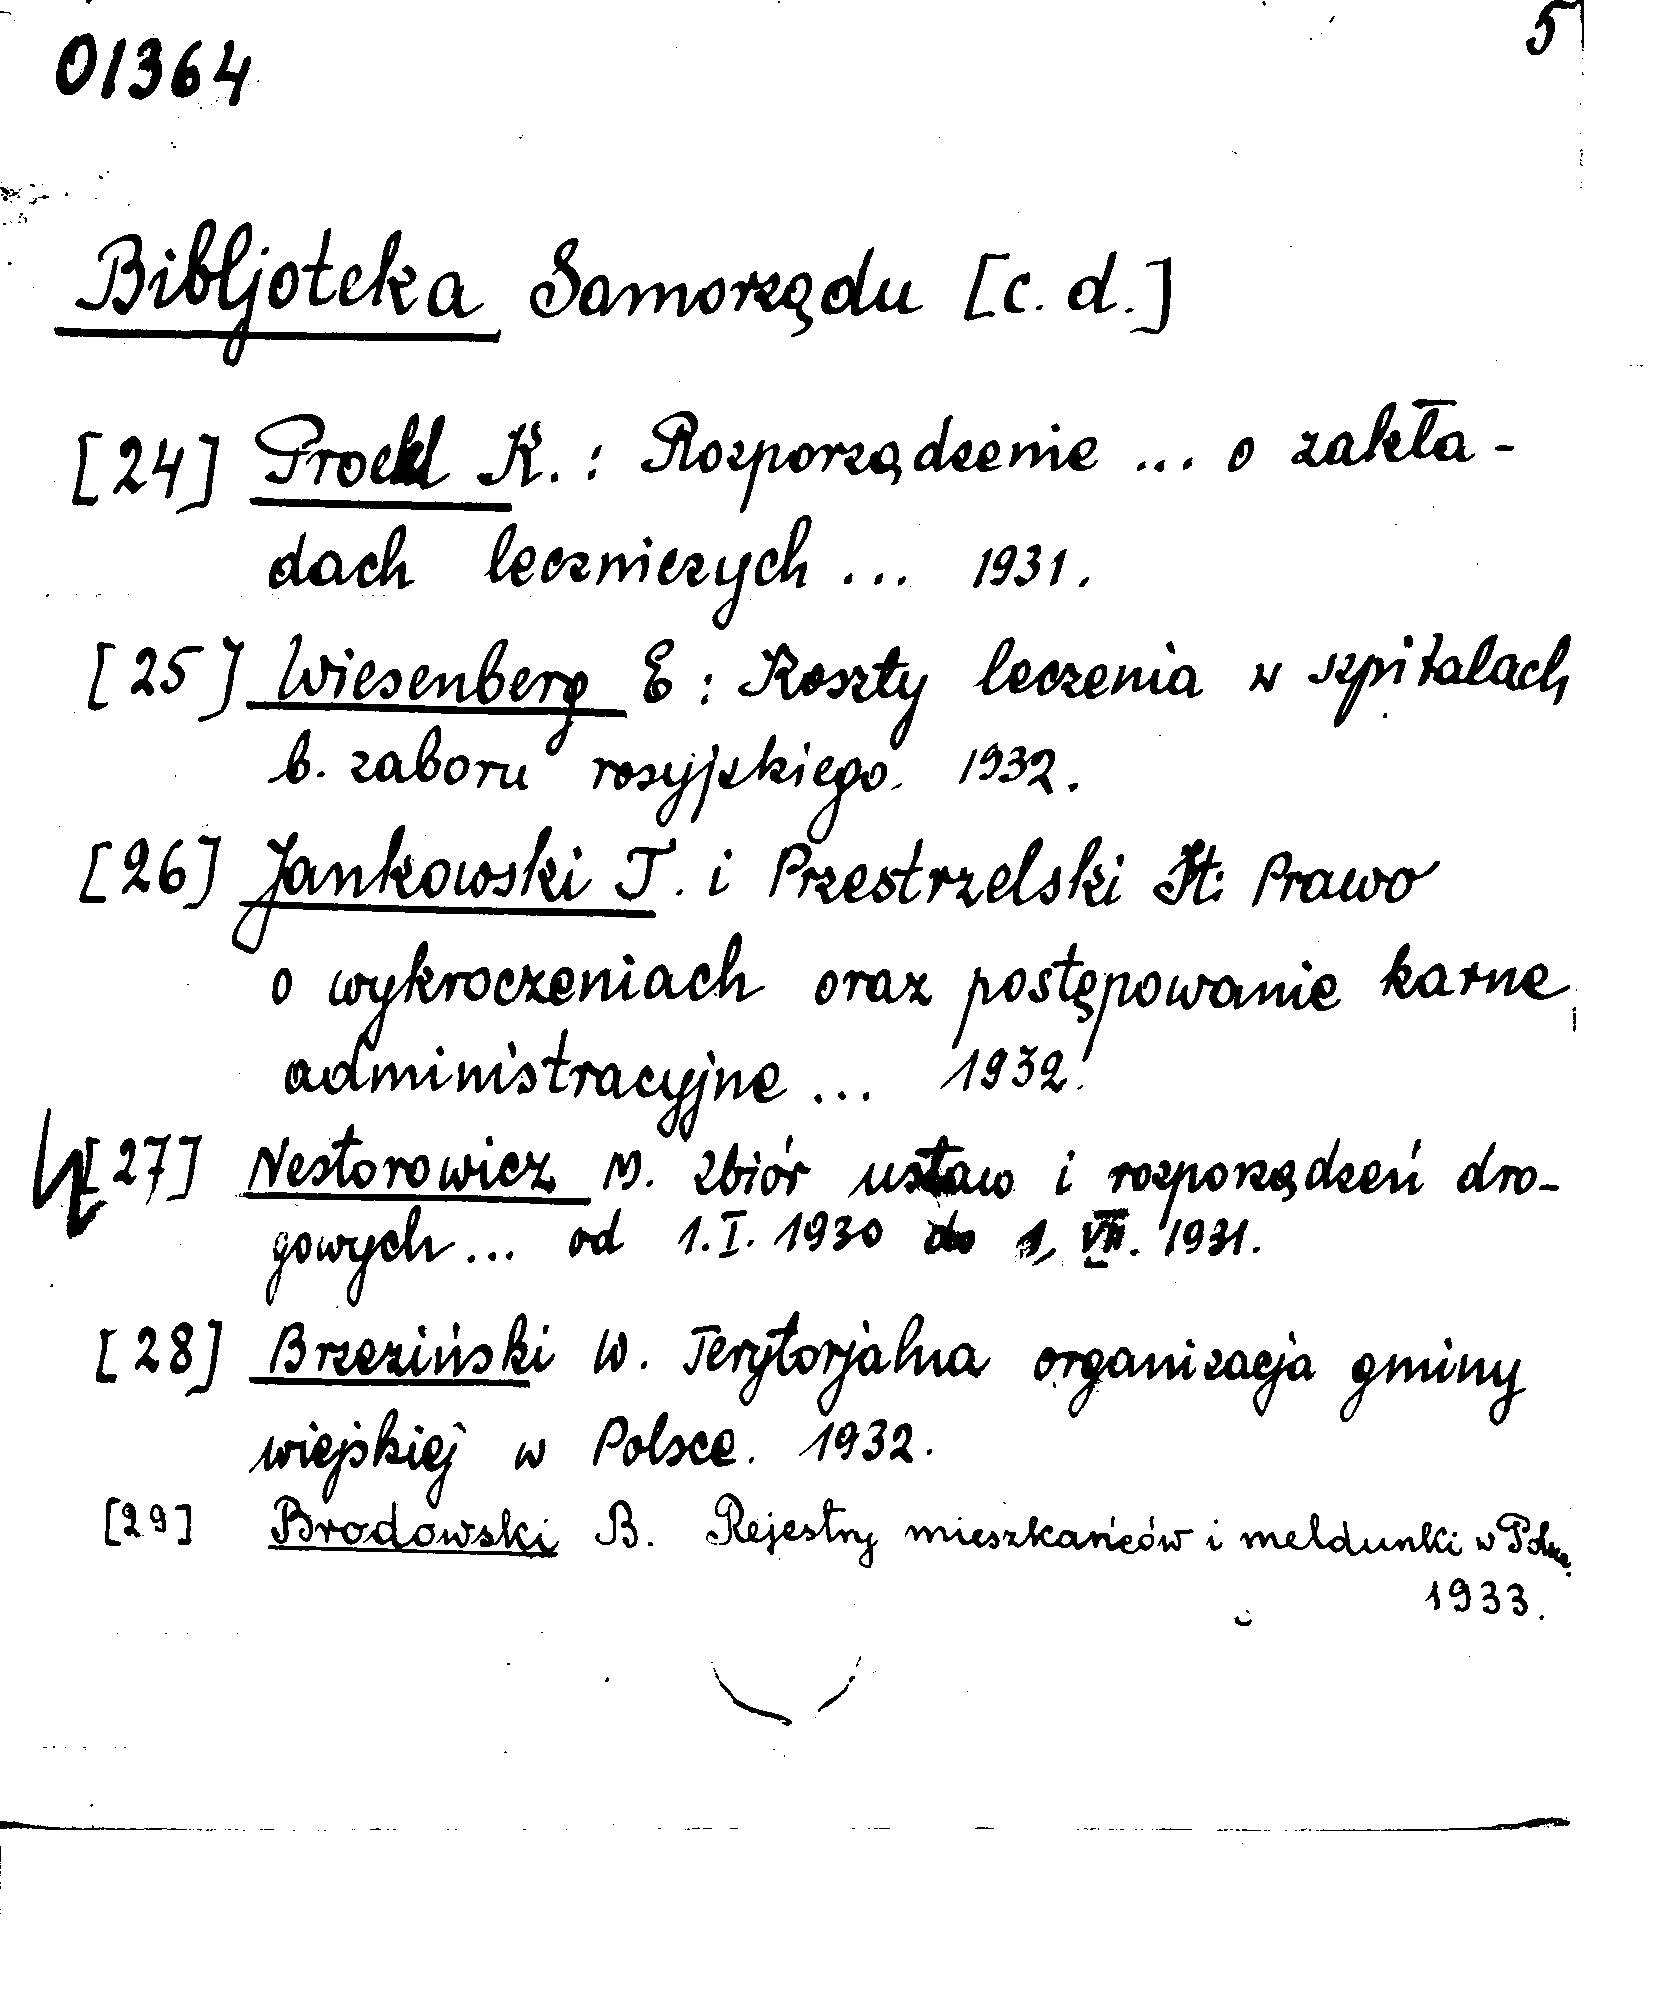 01364
5
Bibljoteka Samorządu [c. d.]
[24] Prockl K. : Rozporządzenie ... o zakła-
dach leczniczych ... 1931.
[25] Wiesenberg E : Koszty leczenia w szpitalach
b. zaboru rosyjskiego. 1932.
[26] Jankowski T. i Przestrzelski St: Prawo
o wykroczeniach oraz postępowanie karne
administracyjne ... 1932.
[27] Nestorowicz M. Zbiór ustaw i rozporządzeń dro-
gowych ... od 1. I. 1930 do 1, VII. 1931.
[28] Brzeziński W. Terytorjalna organizacja gminy
wiejskiej w Polsce. 1932.
[29] Brodowski B. Rejestry mieszkańców i meldunki w Polsce.
1933.